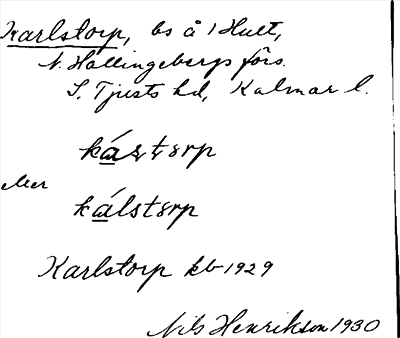 Karlstorp, bs å 1 Hult,
N. Hallingebergs förs.
S. Tjusts hd, Kalmar l.
kástorp
eller
kálstorp
Karlstorp kb 1929
Nils Henrikson 1930